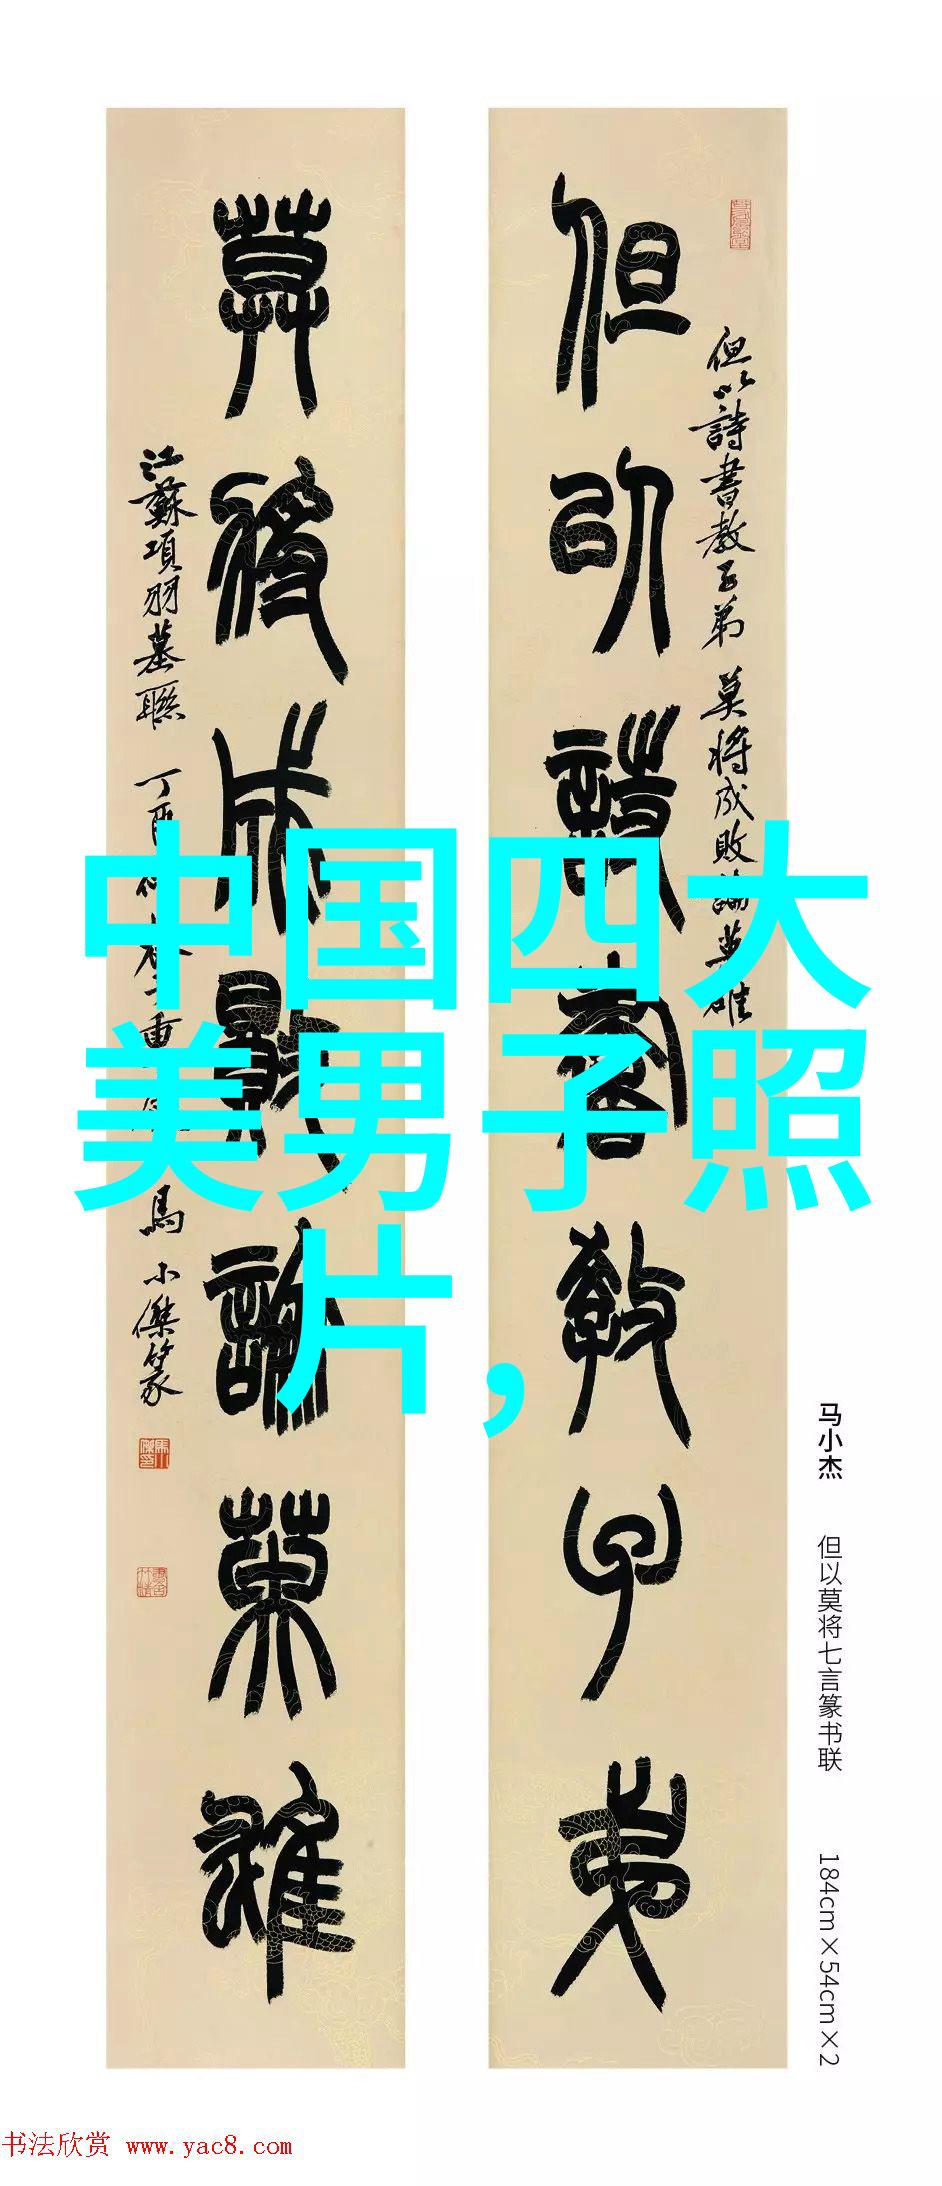 但以詩書教子弟
但以詩書教子弟 莫將成敗論英雄
莫將成敗論英雄
江蘇項羽墓聯 丁酉
馬小傑篆
中国四大
美男子照
片,
马小杰 但以莫将七言篆书联 184cm×54cm×2
书法欣赏 www.yac8.com